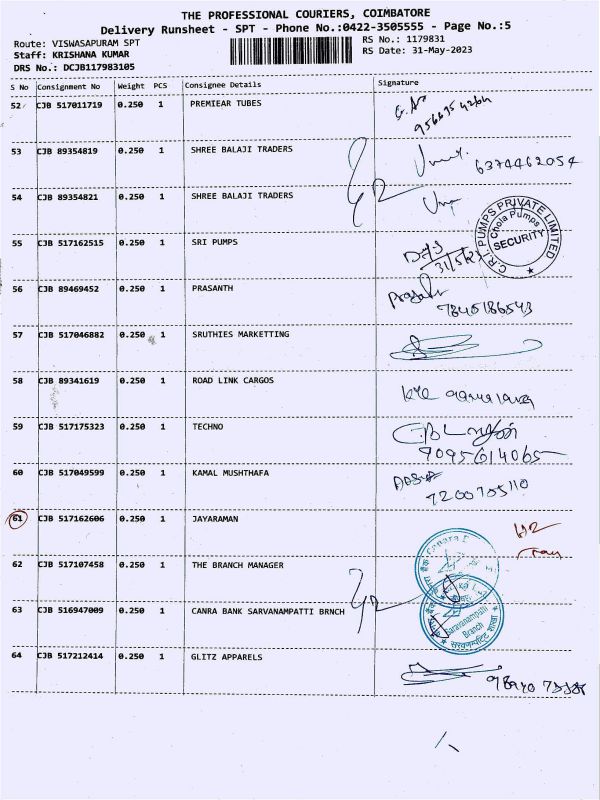 THE PROFESSIONAL COURIERS, COIMBATORE
Delivery Runsheet - SPT - Phone No.:0422-3505555 - Page No.:5
Route: VISWASAPURAM SPT
RS No.: 1179831
Staff: KRISHANA KUMAR
RS Date: 31-May-2023
DRS No.: DCJB117983105
S No Consignment No Weight PCS Consignee Details Signature
52 CJB 517011719 0.250 1 PREMIEAR TUBES
53 CJB 89354819 0.250 1 SHREE BALAJI TRADERS 6374462054
54 CJB 89354821 0.250 1 SHREE BALAJI TRADERS
C.R.I. PUMPS PRIVATE LIMITED
Chola Pumps
SECURITY
55 CJB 517162515 0.250 1 SRI PUMPS
31/5/23
56 CJB 89469452 0.250 1 PRASANTH
7845186543
57 CJB 517046882 0.250 1 SRUTHIES MARKETTING
58 CJB 89341619 0.250 1 ROAD LINK CARGOS
59 CJB 517175323 0.250 1 TECHNO
9095614065
60 CJB 517049599 0.250 1 KAMAL MUSHTHAFA
7200755110
61 CJB 517162606 0.250 1 JAYARAMAN
62 CJB 517107458 0.250 1 THE BRANCH MANAGER
63 CJB 516947009 0.250 1 CANRA BANK SARVANAMPATTI BRNCH
Saravanampatti
Branch
64 CJB 517212414 0.250 1 GLITZ APPARELS